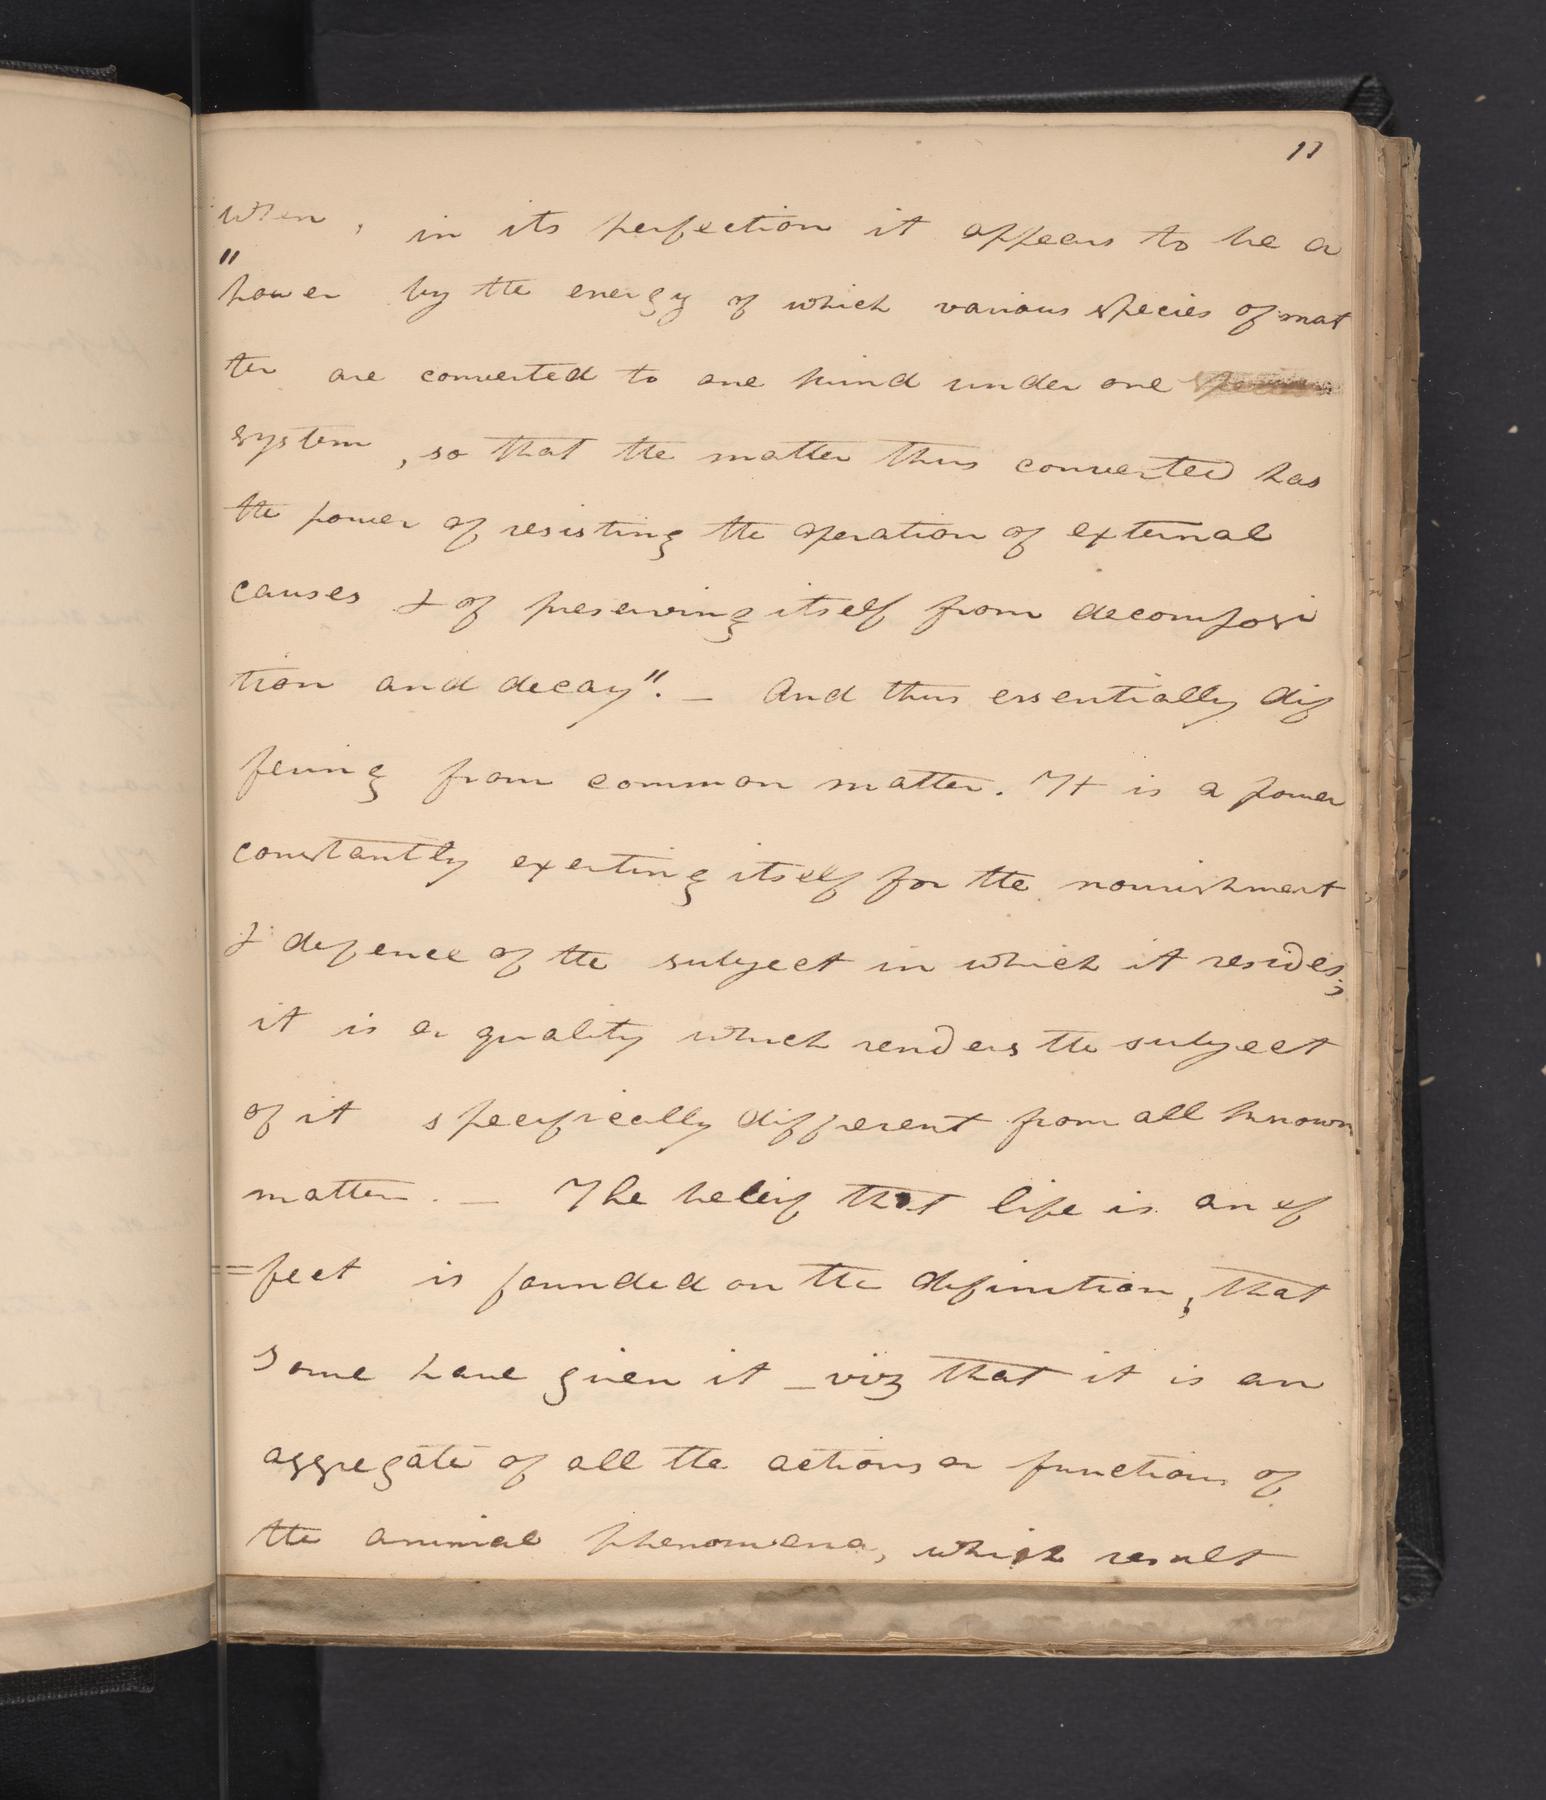 11
when, in its perfection it appears to be a
" power by the energy of which various species of mat
ter are converted to one kind under one
system, so that the matter thus converted has
the power of resisting the operation of external
causes & of preserving itself from decomposi
tion and decay". — And thus essentially dif
fering from common matter. It is a power
constantly exerting itself for the nourishment
& defence of the subject in which it resides;
it is a quality which renders the subject
of it specifically different from all known
matter. — The beleif that life is an ef
=fect is founded on the definition, that
some have given it — viz that it is an
aggregate of all the actions or functions of
the animal phenomena, which result